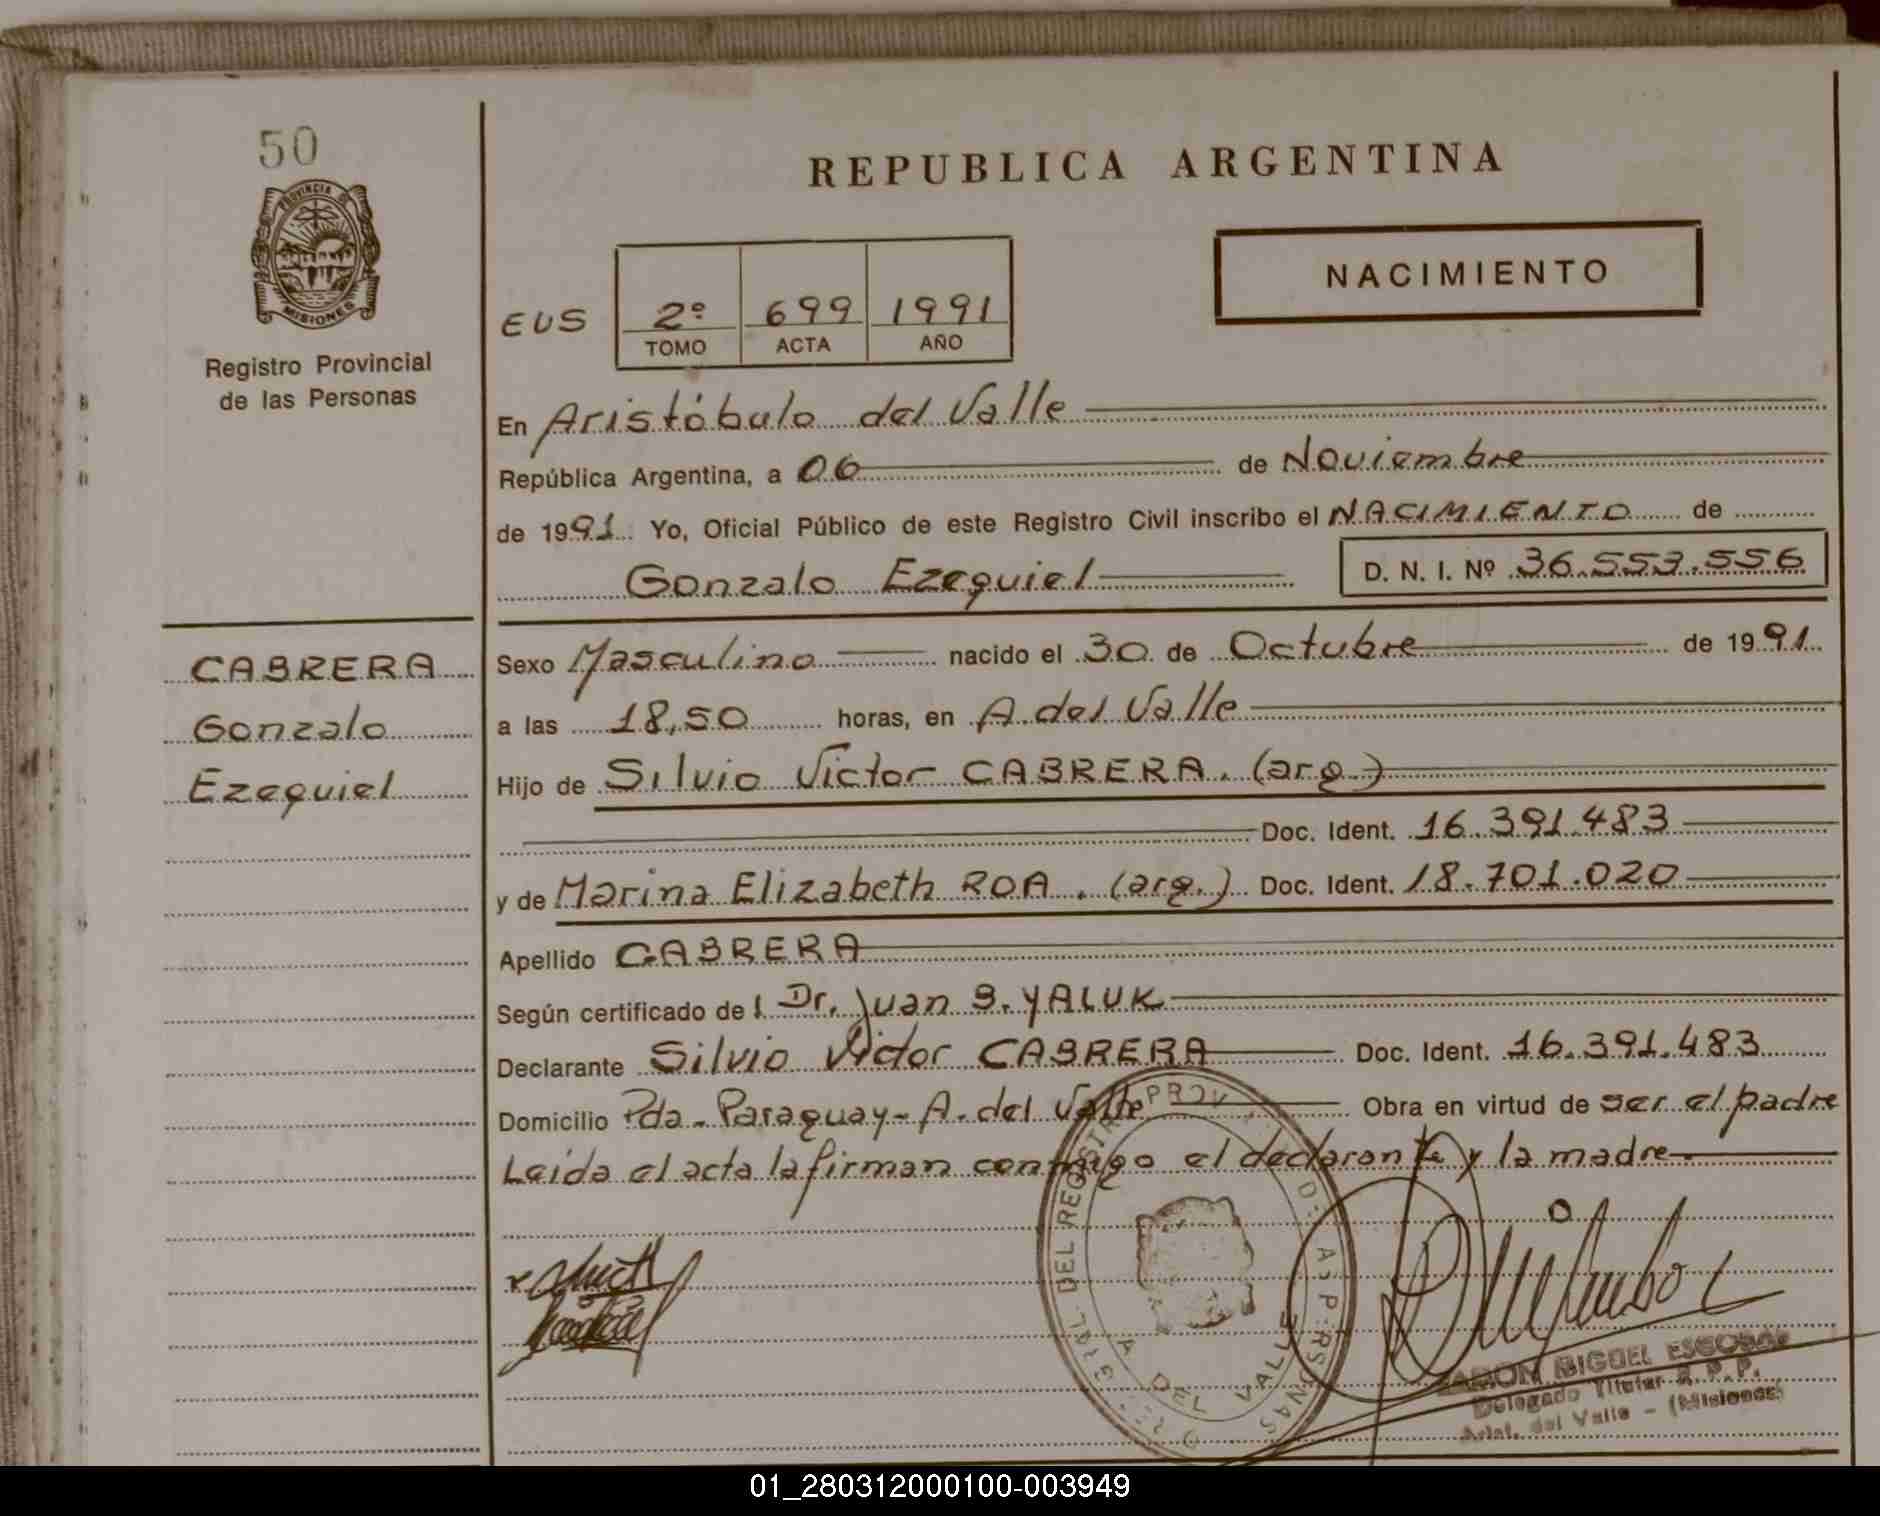 50
PROVINCIA DE
MISIONES
Registro Provincial
de las Personas
REPUBLICA ARGENTINA
NACIMIENTO
EUS
2º 699 1991
TOMO ACTA AÑO
En Aristóbulo del Valle
República Argentina, a 06 de Noviembre
de 1991 Yo, Oficial Público de este Registro Civil inscribo el NACIMIENTO de
Gonzalo Ezequiel D. N. I. Nº 36.553.556
CABRERA
Gonzalo
Ezequiel
Sexo Masculino nacido el 30 de Octubre de 1991
a las 18,50 horas, en A. del Valle
Hijo de Silvio Victor CABRERA. (arg.)
Doc. Ident. 16.391.483
y de Marina Elizabeth ROA. (arg.) Doc. Ident. 18.701.020
Apellido CABRERA
Según certificado de Dr. Juan B. YALUK
Declarante Silvio Victor CABRERA Doc. Ident. 16.391.483
Domicilio Pda. Paraguay - A. del Valle Obra en virtud de ser el padre
Leida el acta la firman conmigo el declarante y la madre
DEL REGISTRO PROV. DE LAS PERSONAS
A DEL VALLE
MIGUEL ESCOBAR
Delegado Titular R. P. P.
Arist. del Valle - (Misiones)
01_280312000100-003949